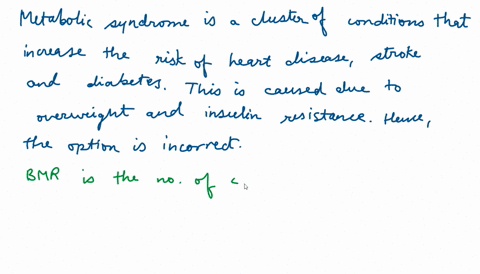 Metabolic syndrome is a cluster of conditions that
increase the risk of heart disease, stroke
and diabetes. This is caused due to
overweight and insulin resistance. Hence,
the option is incorrect.
BMR is the no. of c